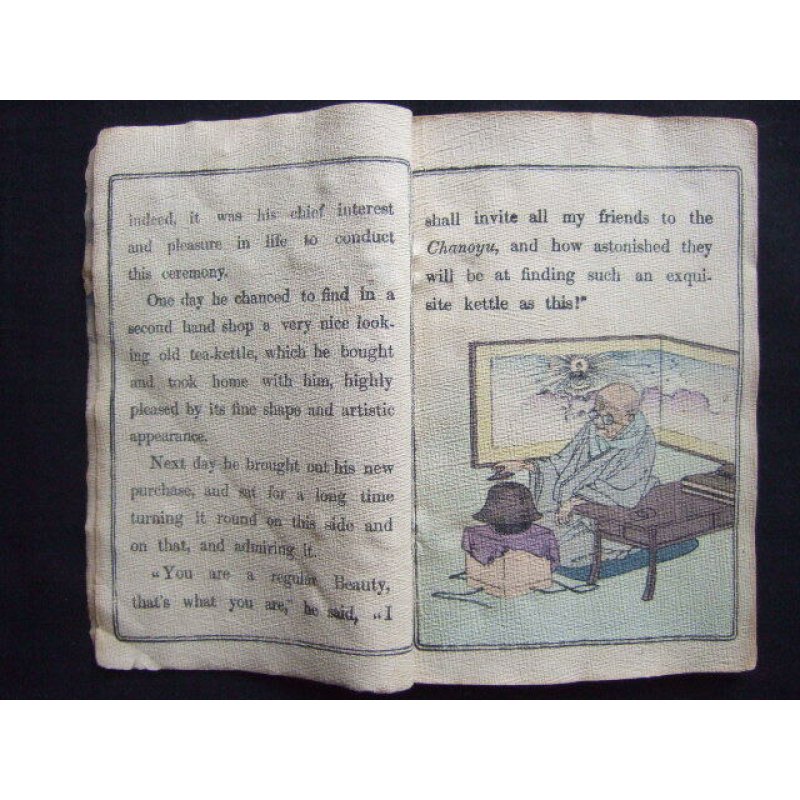 indeed, it was his chief interest
and pleasure in life to conduct
this ceremony.
One day he chanced to find in a
second hand shop a very nice look-
ing old tea-kettle, which he bought
and took home with him, highly
pleased by its fine shape and artistic
appearance.
Next day he brought out his new
purchase, and sat for a long time
turning it round on this side and
on that, and admiring it.
“You are a regular Beauty,
that's what you are,” he said, “I
shall invite all my friends to the
Chanoyu, and how astonished they
will be at finding such an exqui-
site kettle as this!”